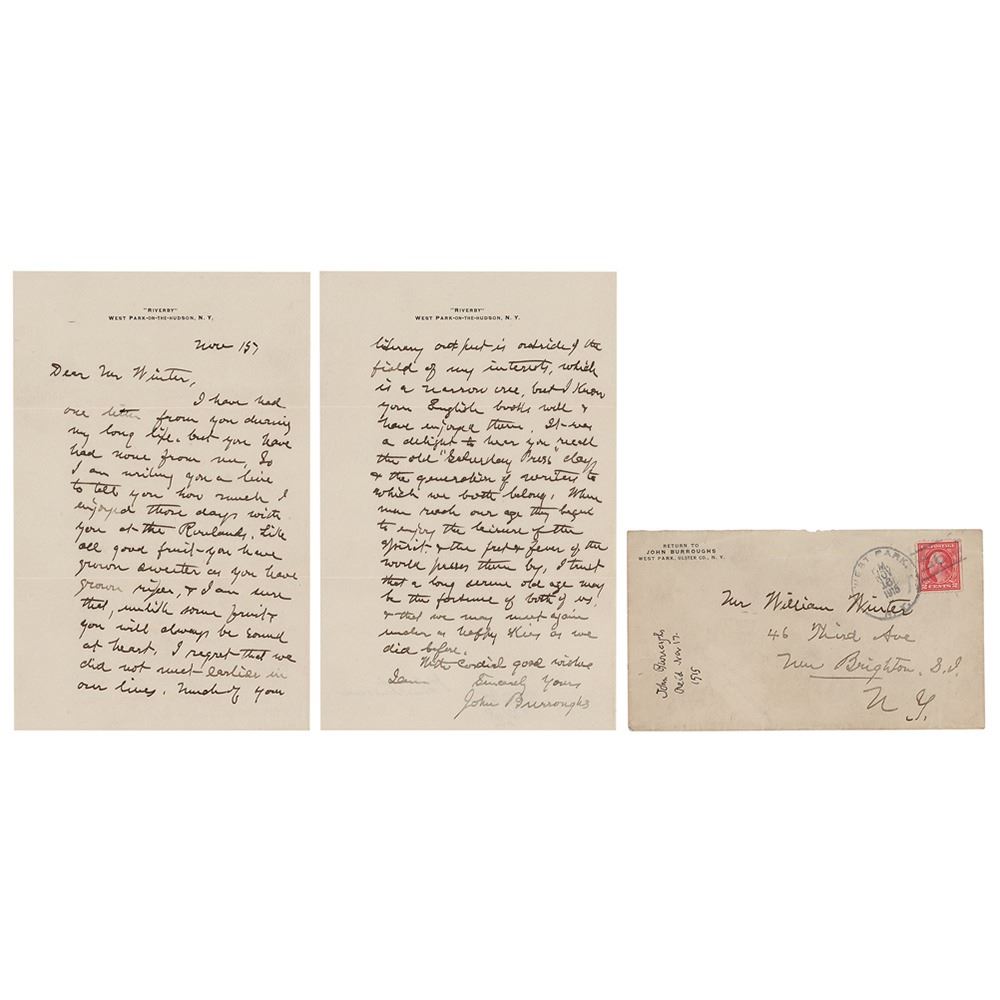 "RIVERBY"
WEST PARK-ON-THE-HUDSON, N. Y.
Nov 15
Dear Mr Winter,
I have had
one letter from you during
my long life, but you have
had none from me, So
I am writing you a line
to tell you how much I
enjoyed those days with
you at the Rowlands. Like
all good fruit you have
grown sweeter as you have
grown riper, & I am sure
that, unlike some fruit
you will always be sound
at heart. I regret that we
did not meet earlier in
our lives. Much of your
"RIVERBY"
WEST PARK-ON-THE-HUDSON, N. Y.
literary output is outside of the
field of my interests, which
is a narrow one, but I know
your English books well &
have enjoyed them. It was
a delight to hear you recall
the old "Saturday Press" days
& the generation of writers to
which we both belong. When
men reach our age they begin
to enjoy the leisure of the
spirit & the fret & fever of the
world passes them by. I trust
that a long serene old age may
be the fortune of both of us,
& that we may meet again
under as happy skies as we
did before.
With cordial good wishes
I am Sincerely Yours
John Burroughs
RETURN TO
JOHN BURROUGHS
WEST PARK, ULSTER CO., N. Y.
WEST PARK,
NOV
1915
N.Y.
U.S. POSTAGE
2 CENTS 2
Mr William Winter
46 Third Ave
New Brighton, S.I.
N Y.
John Burroughs
Recd Nov 17.
1915